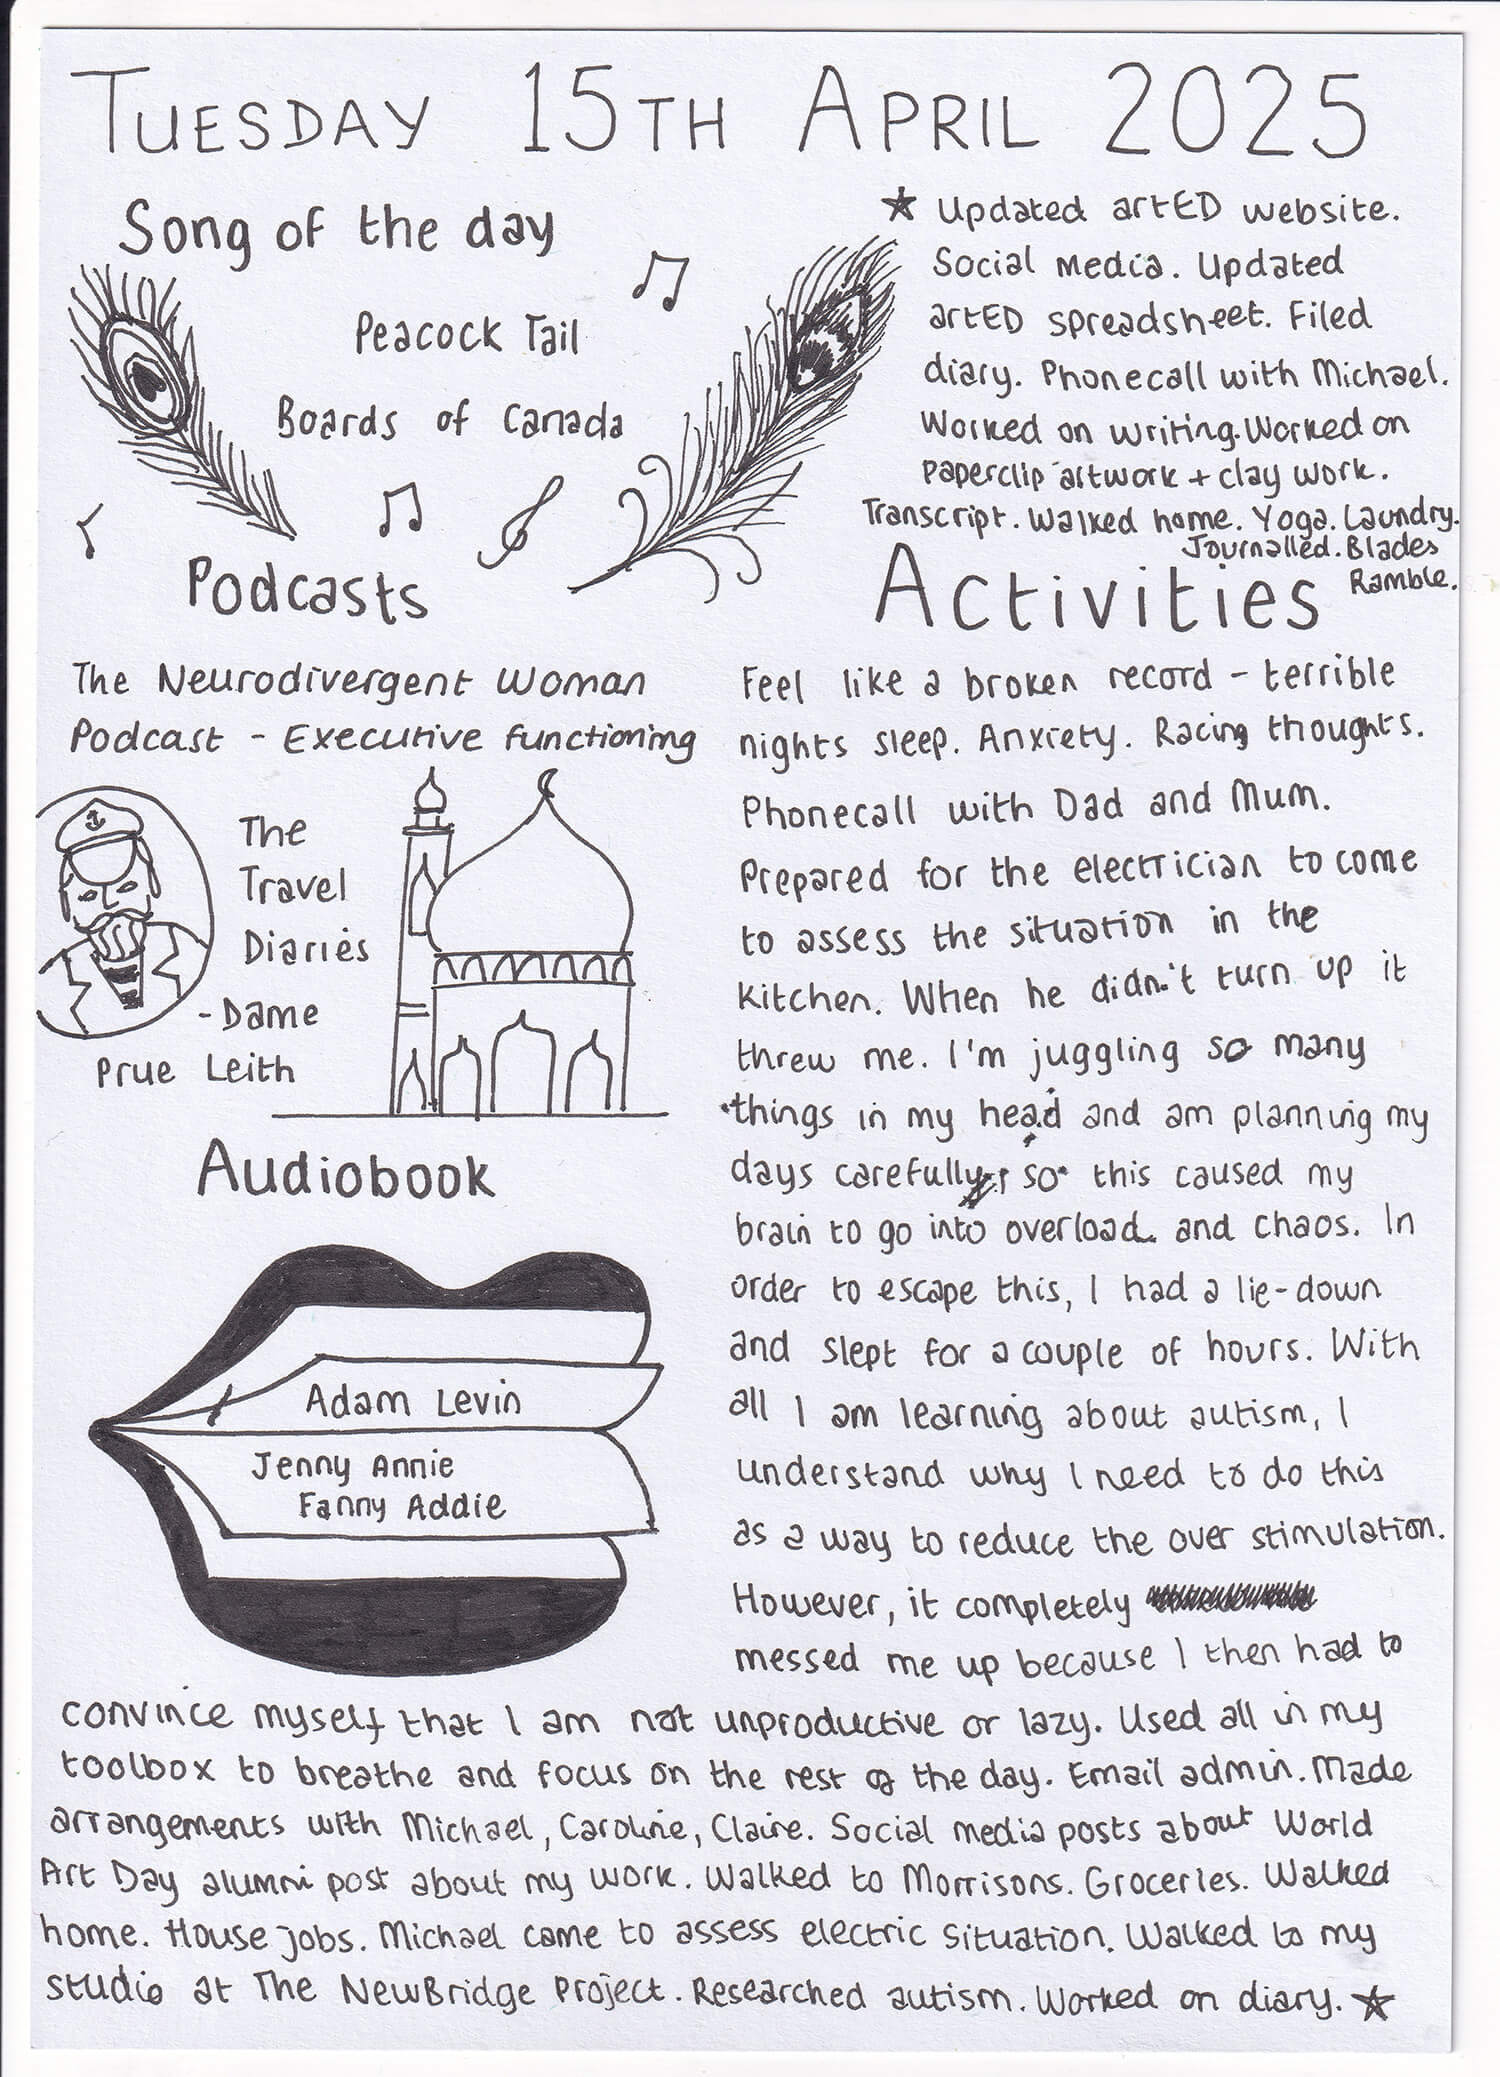 TUESDAY 15TH APRIL 2025
Song of the day
Peacock Tail
Boards of Canada
Podcasts
The Neurodivergent Woman
Podcast - Executive functioning
The
Travel
Diaries
- Dame
Prue Leith
Audiobook
Adam Levin
Jenny Annie
Fanny Addie
Activities
Feel like a broken record - terrible
nights sleep. Anxiety. Racing thoughts.
Phonecall with Dad and Mum.
Prepared for the electrician to come
to assess the situation in the
kitchen. When he didn't turn up it
threw me. I'm juggling so many
things in my head and am planning my
days carefully, so this caused my
brain to go into overload and chaos. In
order to escape this, I had a lie-down
and slept for a couple of hours. With
all I am learning about autism, I
understand why I need to do this
as a way to reduce the over stimulation.
However, it completely
messed me up because I then had to
convince myself that I am not unproductive or lazy. Used all in my
toolbox to breathe and focus on the rest of the day. Email admin. Made
arrangements with Michael, Caroline, Claire. Social media posts about World
Art Day alumni post about my work. Walked to Morrisons. Groceries. Walked
home. House jobs. Michael came to assess electric situation. Walked to my
studio at The NewBridge Project. Researched autism. Worked on diary. ☆
☆ Updated artED website.
Social media. Updated
artED spreadsheet. Filed
diary. Phonecall with Michael.
Worked on writing. Worked on
paperclip artwork + clay work.
Transcript. Walked home. Yoga. Laundry.
Journalled. Blades
Ramble.